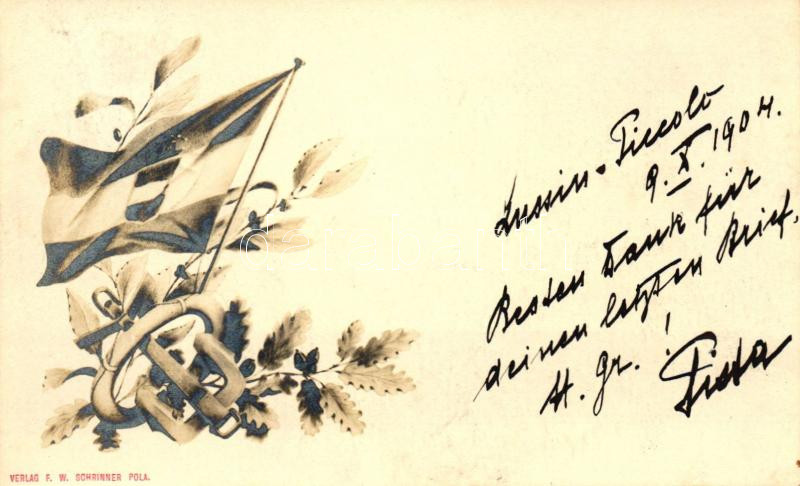 Lussin-Piccolo
9.X.1904.
Besten Dank für
deinen letzten Brief.
H. Gr. !
Pista
VERLAG F. W. SCHRINNER POLA.